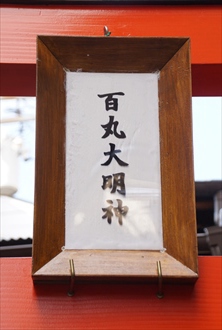 百丸大明神